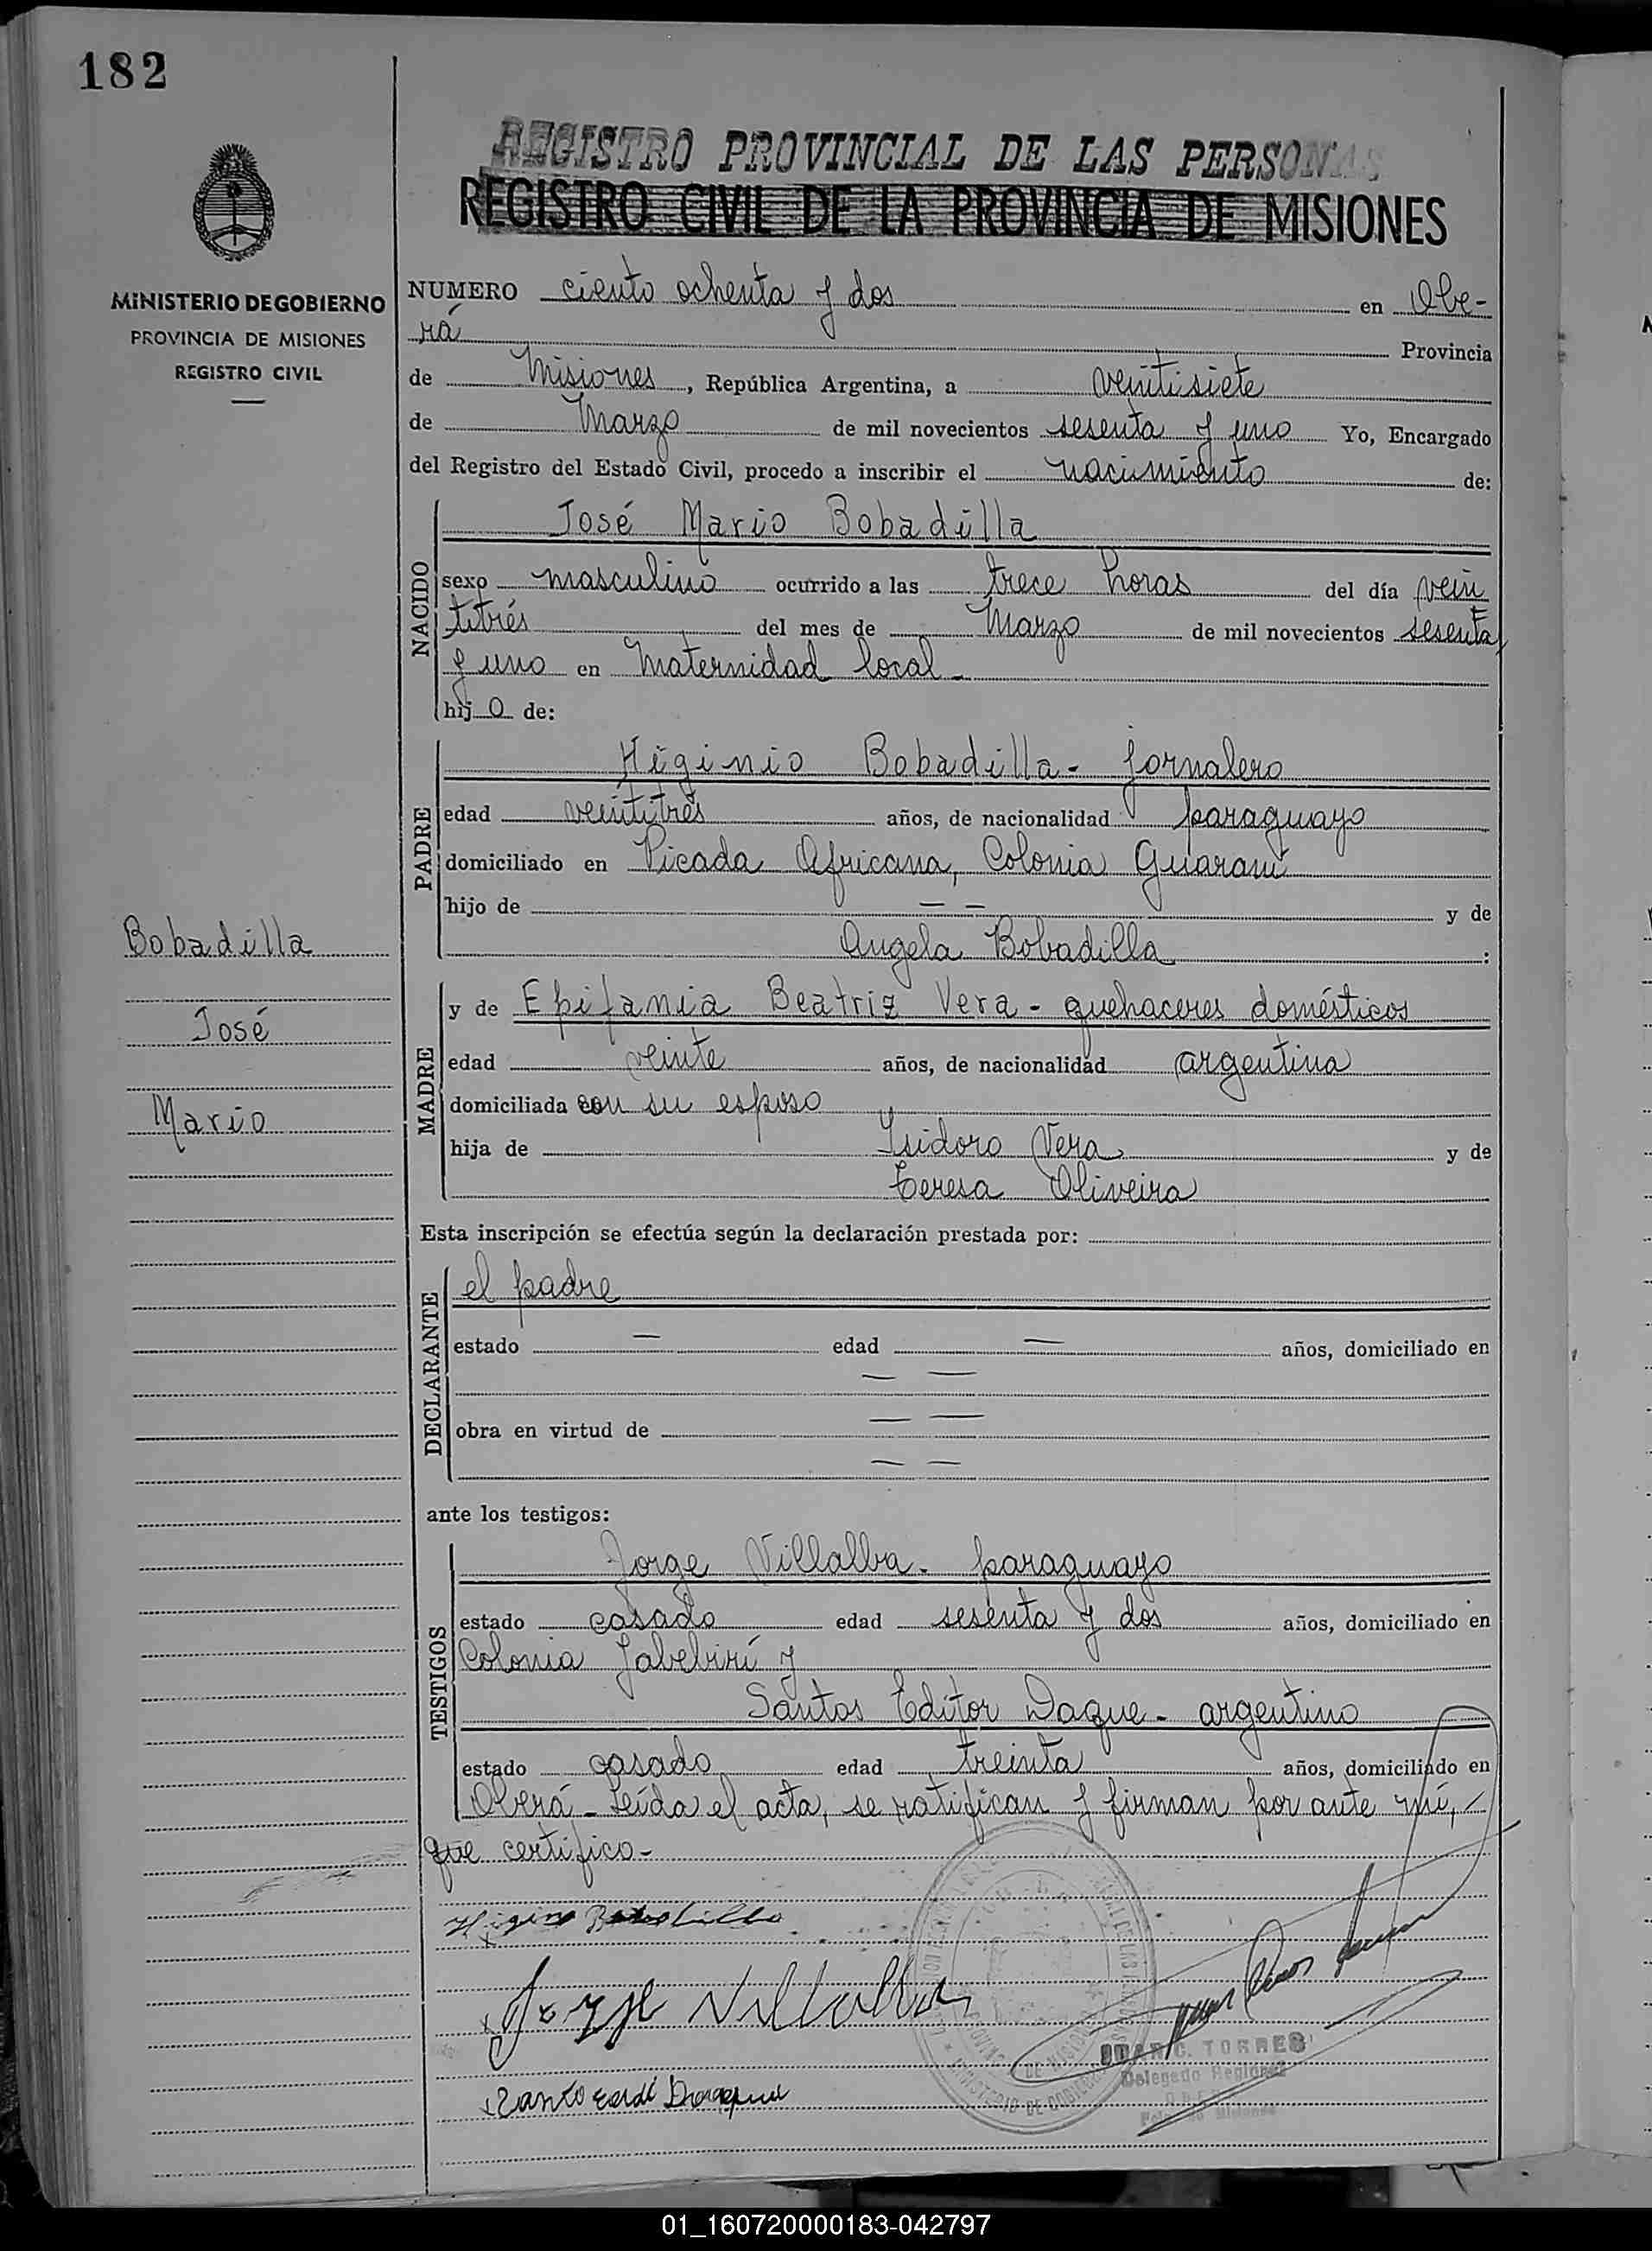 182
REGISTRO PROVINCIAL DE LAS PERSONAS
REGISTRO CIVIL DE LA PROVINCIA DE MISIONES
MINISTERIO DE GOBIERNO
PROVINCIA DE MISIONES
REGISTRO CIVIL
NUMERO ciento ochenta y dos en Obe-
rá Provincia
de Misiones, República Argentina, a veintisiete
de Marzo de mil novecientos sesenta y uno Yo, Encargado
del Registro del Estado Civil, procedo a inscribir el nacimiento de:
NACIDO
José Mario Bobadilla
sexo masculino ocurrido a las trece horas del día vein
titrés del mes de Marzo de mil novecientos sesenta
y uno en Maternidad local-
hij o de:
PADRE
Higinio Bobadilla- jornalero
edad veintitrés años, de nacionalidad paraguayo
domiciliado en Picada Africana, Colonia Guaraní
hijo de — — y de
Angela Bobadilla :
Bobadilla
José
Mario
MADRE
y de Epifania Beatriz Vera - quehaceres domésticos
edad veinte años, de nacionalidad argentina
domiciliada con su esposo
hija de Isidoro Vera y de
Teresa Oliveira
Esta inscripción se efectúa según la declaración prestada por:
DECLARANTE
el padre
estado — edad — años, domiciliado en
— —
obra en virtud de — —
— —
ante los testigos:
TESTIGOS
Jorge Villalba- paraguayo
estado casado edad sesenta y dos años, domiciliado en
Colonia Jabebirí y
Santos Editor Daque- argentino
estado casado edad treinta años, domiciliado en
Oberá- Leída el acta, se ratifican y firman por ante mí,-
que certifico-
Higinio Bobadilla
Jorge Villalba
C. TORRES
Delegado Regional
01_160720000183-042797